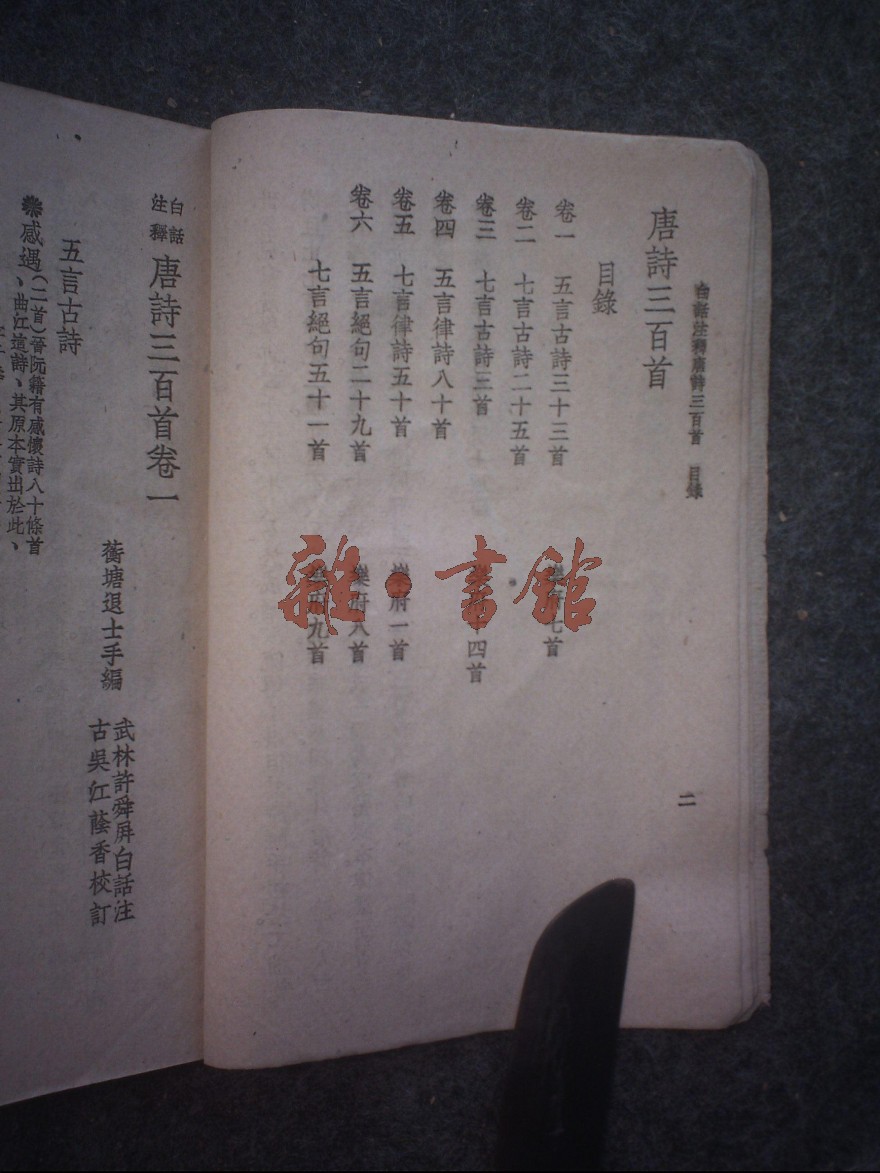 白話注釋唐詩三百首 目錄
二
唐詩三百首
目錄
卷一 五言古詩三十三首 樂府七首
卷二 七言古詩二十五首
卷三 七言古詩三首 樂府十四首
卷四 五言律詩八十首
卷五 七言律詩五十首 樂府一首
卷六 五言絕句二十九首 樂府八首
七言絕句五十一首 樂府九首
雜·書館
白話注釋 唐詩三百首卷一
蘅塘退士手編
武林許舜屏白話注
古吳江蔭香校訂
五言古詩
感遇(二首)晉阮籍有感懷詩八十餘首
、曲江這詩、其原本實出於此、